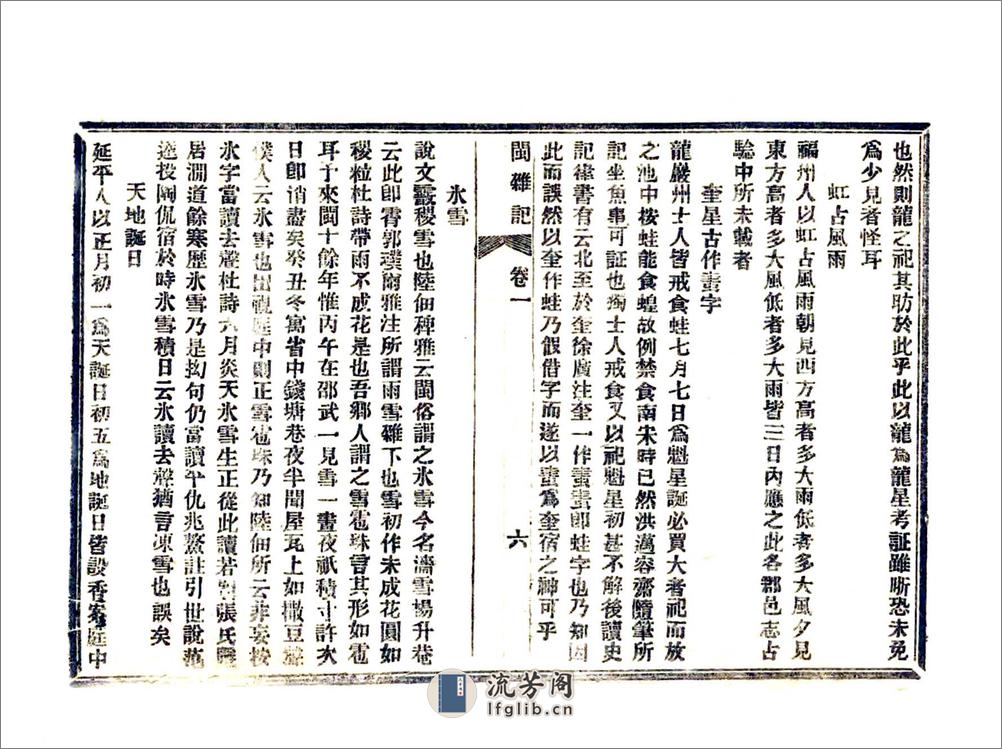 也然則龍之祀其昉於此乎此以龍爲龍星考証雖晰恐未免
爲少見者怪耳
虹占風雨
福州人以虹占風雨朝見西方高者多大雨低者多大風夕見
東方高者多大風低者多大雨皆三日內應之此各郡邑志占
驗中所未載者
奎星古作䖯字
龍巖州士人皆戒食蛙七月七日爲魁星誕必買大者祀而放
之池中按蛙能食蝗故例禁食南宋時已然洪邁容齋隨筆所
記坐魚事可証也獨士人戒食又以祀魁星初甚不解後讀史
記律書有云北至於奎徐廣注奎一作䖯䖯即蛙字也乃知因
此而誤然以奎作蛙乃假借字而遂以䖯爲奎宿之神可乎
閩雜記
卷一
六
氷雪
說文霰稷雪也陸佃稗雅云閩俗謂之氷雪今名濇雪場升菴
云此即霄郭璞爾雅注所謂雨雪雜下也雪初作未成花圓如
稷粒杜詩帶雨不成花是也吾鄉人謂之雪雹珠言其形如雹
耳予來閩十餘年惟丙午在邵武一見雪一晝夜祇積寸許次
日即消盡矣癸丑冬寓省中錢塘巷夜半聞屋瓦上如撒豆聲
僕人云氷雪也出視庭中則正雪雹珠乃知陸佃所云非妄按
氷字當讀去聲杜詩六月炎天氷雪生正從此讀若對張氏隱
居澗道餘寒歷氷雪乃是拗句仍當讀平仇兆鰲註引世說范
逵投陶侃宿於時氷雪積日云氷讀去聲猶言凍雪也誤矣
天地誕日
延平人以正月初一爲天誕日初五爲地誕日皆設香案庭中
流芳阁
lfglib.cn